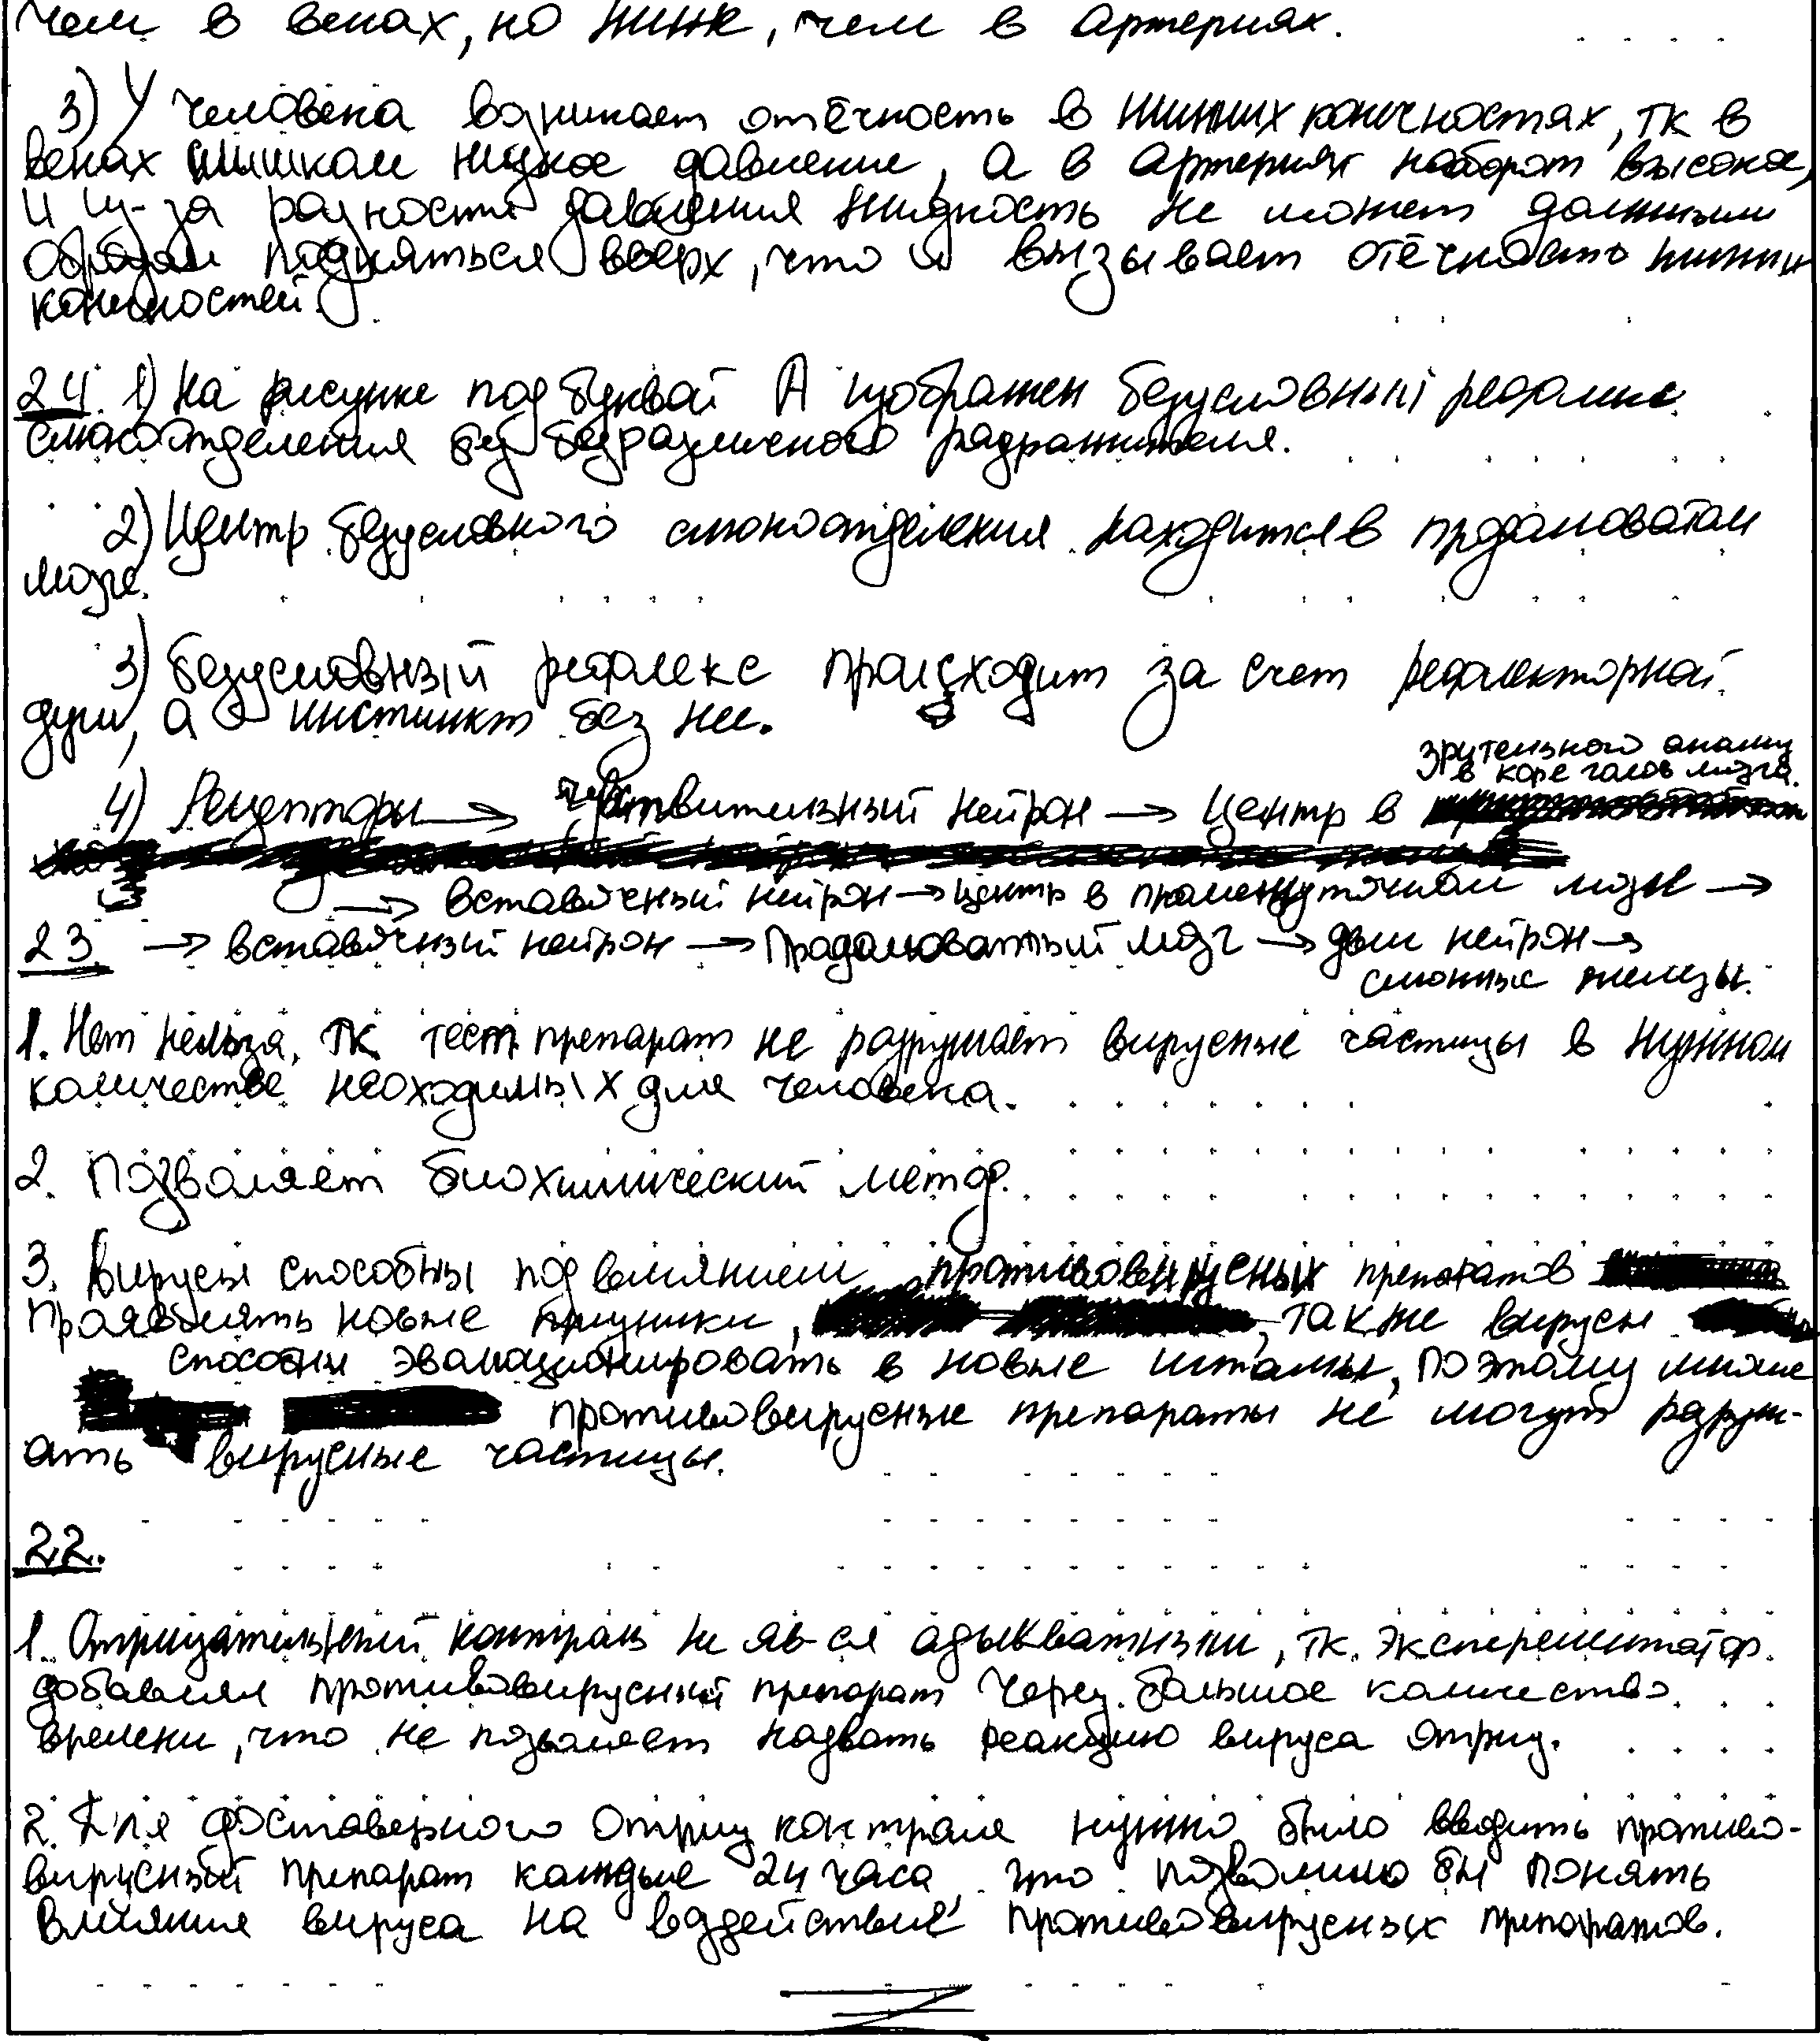 чем в венах, но ниже, чем в артериях.
3) У человека возникает отёчность в нижних конечностях, тк в
венах слишком низкое давление, а в артериях наоборот высокое,
и из-за разности давления жидкость не может должным
образом подняться вверх, что и вызывает отёчность нижних
конечностей.
24. 1) На рисунке под буквой А изображен безусловный рефлекс
слюноотделения без безразличного раздражителя.
2) Центр безусловного слюноотделения находится в продолговатом
мозге.
3) Безусловный рефлекс происходит за счет рефлекторной
дуги, а инстинкт без нее.
зрительного анализ
в коре голов мозга.
4) Рецепторы → чувствительный нейрон → Центр в
→ вставочный нейрон → центр в промежуточном мозге →
23. → вставочный нейрон → Продолговатый мозг → двиг нейрон →
слюнные железы.
1. Нет нельзя, тк тест препарат не разрушает вирусные частицы в нужном
количестве неоходимых для человека.
2. Позволяет биохимический метод.
3. Вирусы способны под влиянием противовирусных препаратов
Проявлять новые признаки, также вирусы
способны эволюционировать в новые штамы, поэтому многие
противовирусные препараты не могут разруш-
ать вирусные частицы.
22.
1. Отрицательный контроль не яв-ся адыкватным, тк. эксперементатор
добавлял противовирусный препарат через большое количество
времени, что не позволяет назвать реакцию вируса отриц.
2. Для достоверного отриц контроля нужно было вводить противо-
вирусный препарат каждые 24 часа, что позволило бы понять
влияние вируса на воздействие противовирусных препаратов.